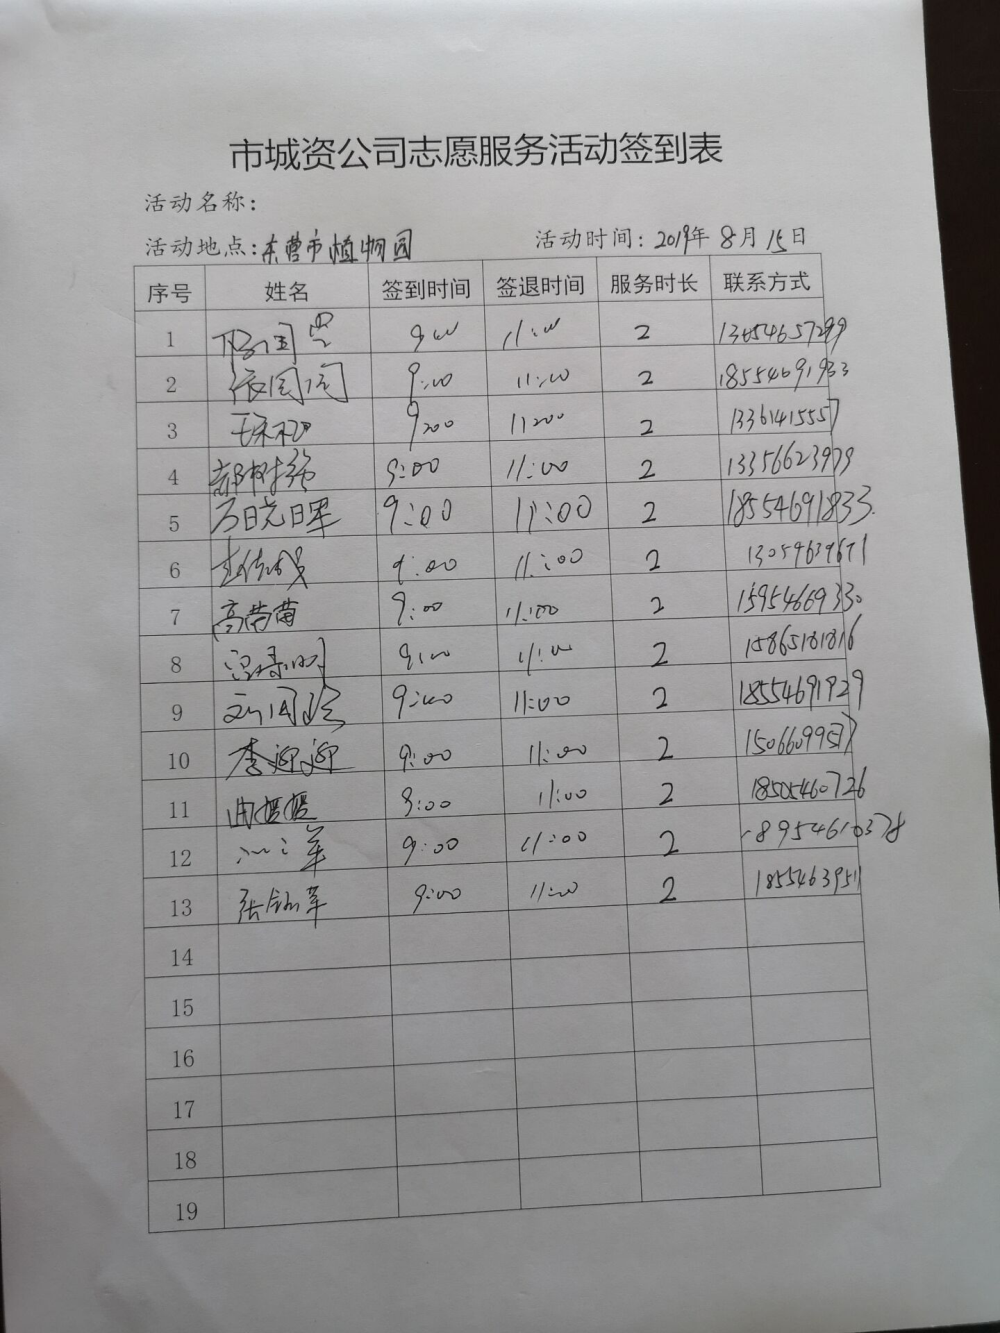 市城资公司志愿服务活动签到表
活动名称:
活动地点:东营市植物园 活动时间: 2019年 8月 15日
序号 姓名 签到时间 签退时间 服务时长 联系方式
1 9:00 11:00 2
2 9:00 11:00 2 18554691933
3 9:00 11:00 2 13361415557
4 郝树强 9:00 11:00 2 13356623979
5 万晓晖 9:00 11:00 2 18554691833
6 9:00 11:00 2
7 高苗苗 9:00 11:00 2 15954669330
8 9:00 11:00 2 15865181816
9 9:00 11:00 2 18554691929
10 李迎迎 9:00 11:00 2 15066099577
11 9:00 11:00 2 18505460726
12 9:00 11:00 2 18954610378
13 9:00 11:00 2 1855463951
14
15
16
17
18
19